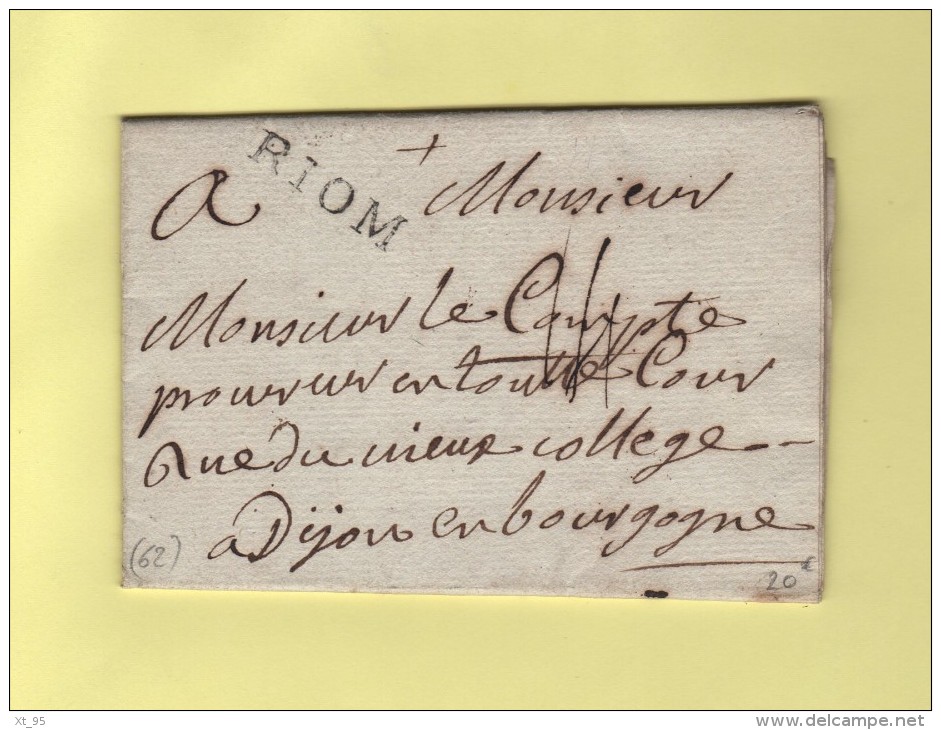 RIOM
+
A Monsieur
Monsieur le Compte
procureur en toutte Cour
Rue du vieux college
a Dijon en bourgogne
(62)
20€
Xt_95
www.delcampe.net